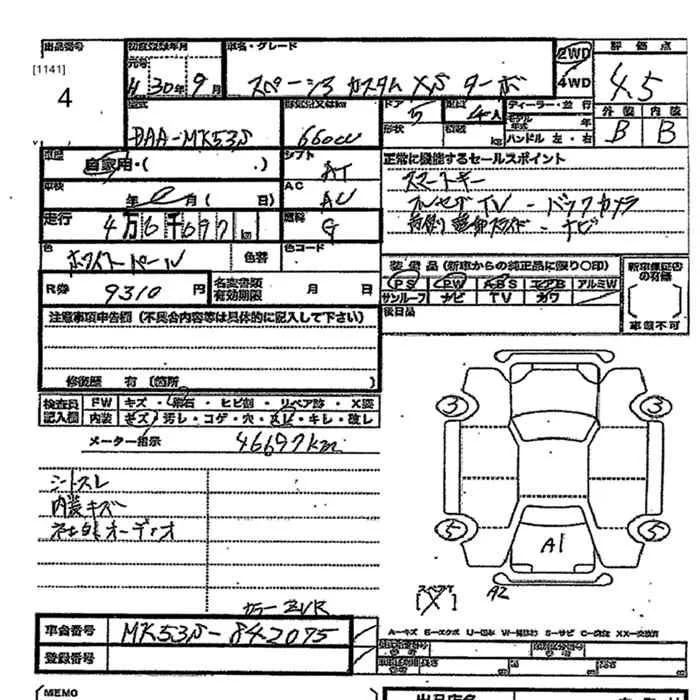 出品番号
[1141]
4
初度登録年月
元号
H 30年 9月
車名・グレード
スペーシア カスタム XS ターボ
2WD
4WD
評価点
4.5
外装 内装
B B
型式
DAA-MK53S
660cc
ドア
5
形状
定員
4人
積載
kg
ディーラー・並行
モデル年式 年
ハンドル 左・右
車歴
自家用・( )
シフト
AT
車検
年 月( 日)
AC
AC
走行
4万6千697km
燃料
G
正常に機能するセールスポイント
スマートキー
フルセグTV・バックカメラ
両側電動スライド・ナビ
色
ホワイトパール
色替
色コード
R券
9310円
名変書類有効期限
月 日
装備品(新車からの純正品に限り〇印)
PS PW ABS エアB アルミW
サンルーフ ナビ TV カワ
後日品
新車保証書の有無
車載不可
注意事項申告欄(不具合内容等は具体的に記入して下さい)
修復歴 有 (箇所 )
検査員記入欄
FW キズ・飛石・ヒビ割・リペア跡・X要
内装 キズ・汚レ・コゲ・穴・スレ・キレ・改し
メーター指示
46697km
シートスレ
内装キズ
社外オーディオ
3 3
5 5
A1
A2
スペアタイヤ
[X]
カラー ZVR
車台番号
MK53S-842075
登録番号
A-キズ E-エクボ U-凹み W-補修わり S-サビ C-腐食 XX-交換済
MEMO
出品店名